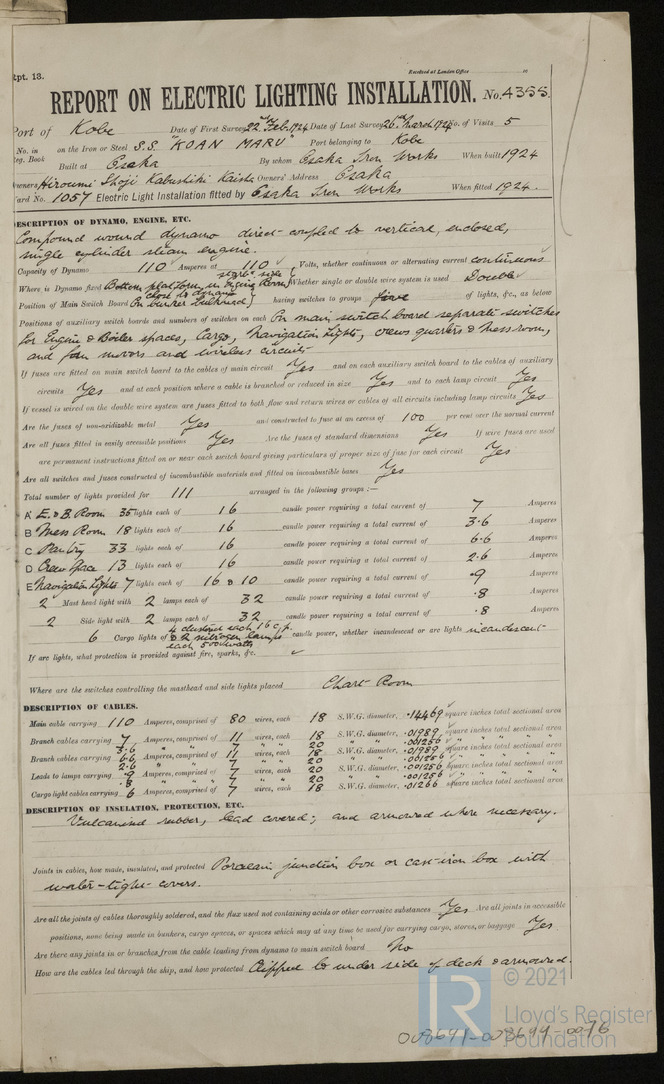 Rpt. 13.
Received at London Office
REPORT ON ELECTRIC LIGHTING INSTALLATION. No. 4355.
Port of Kobe Date of First Survey 22nd Feb. 1924 Date of Last Survey 26th March 1924 No. of Visits 5
No. in Reg. Book on the Iron or Steel S.S. "KOAN MARU" Port belonging to Kobe
Built at Osaka By whom Osaka Iron Works When built 1924
Owners Hiroumi Shoji Kabushiki Kaisha Owners' Address Osaka
Yard No. 1057 Electric Light Installation fitted by Osaka Iron Works When fitted 1924.
DESCRIPTION OF DYNAMO, ENGINE, ETC.
Compound wound dynamo direct-coupled to vertical, enclosed,
single cylinder steam engine.
Capacity of Dynamo 110 Amperes at 110 Volts, whether continuous or alternating current continuous
Where is Dynamo fixed Bottom platform in Engine Room starbd side Whether single or double wire system is used Double
Position of Main Switch Board close to dynamo On bunker bulkhead having switches to groups five of lights, &c., as below
Positions of auxiliary switch boards and numbers of switches on each On main switch board separate switches
for Engine & Boiler spaces, Cargo, Navigation Lights, crews quarters & Mess room,
and for motors and wireless circuits
If fuses are fitted on main switch board to the cables of main circuit Yes and on each auxiliary switch board to the cables of auxiliary
circuits Yes and at each position where a cable is branched or reduced in size Yes and to each lamp circuit Yes
If vessel is wired on the double wire system are fuses fitted to both flow and return wires or cables of all circuits including lamp circuits Yes
Are the fuses of non-oxidizable metal Yes and constructed to fuse at an excess of 100 per cent over the normal current
Are all fuses fitted in easily accessible positions Yes Are the fuses of standard dimensions Yes If wire fuses are used
are permanent instructions fitted on or near each switch board giving particulars of proper size of fuse for each circuit Yes
Are all switches and fuses constructed of incombustible materials and fitted on incombustible bases Yes
Total number of lights provided for 111 arranged in the following groups :—
A E. & B. Room 35 lights each of 16 candle power requiring a total current of 7 Amperes
B Mess Room 18 lights each of 16 candle power requiring a total current of 3.6 Amperes
C Pantry 33 lights each of 16 candle power requiring a total current of 6.6 Amperes
D Crew Space 13 lights each of 16 candle power requiring a total current of 2.6 Amperes
E Navigation Lights 7 lights each of 16 & 10 candle power requiring a total current of .9 Amperes
2 Mast head light with 2 lamps each of 32 candle power requiring a total current of .8 Amperes
2 Side light with 2 lamps each of 32 candle power requiring a total current of .8 Amperes
6 Cargo lights of 4 clusters each 16 c.p. & 2 nitrogen lamps each 500 watts candle power, whether incandescent or arc lights incandescent
If arc lights, what protection is provided against fire, sparks, &c.
Where are the switches controlling the masthead and side lights placed Chart Room
DESCRIPTION OF CABLES.
Main cable carrying 110 Amperes, comprised of 80 wires, each 18 S.W.G. diameter, .14469 square inches total sectional area
Branch cables carrying 7 Amperes, comprised of 11 wires, each 18 S.W.G. diameter, .01989 square inches total sectional area
3.6 " " 7 " " 20 " " .001256 " " " "
Branch cables carrying 6.6 Amperes, comprised of 11 wires, each 18 S.W.G. diameter, .01989 square inches total sectional area
2.6 " " 7 " " 20 " " .001256 " " " "
Leads to lamps carrying .9 Amperes, comprised of 7 wires, each 20 S.W.G. diameter, .001256 square inches total sectional area
.8 " " 7 " " 20 " " .001256 " " " "
Cargo light cables carrying 6 Amperes, comprised of 7 wires, each 18 S.W.G. diameter, .01266 square inches total sectional area
DESCRIPTION OF INSULATION, PROTECTION, ETC.
Vulcanised rubber, lead covered; and armoured where necessary.
Joints in cables, how made, insulated, and protected Porcelain junction box or cast-iron box with
water-tight covers.
Are all the joints of cables thoroughly soldered, and the flux used not containing acids or other corrosive substances Yes Are all joints in accessible
positions, none being made in bunkers, cargo spaces, or spaces which may at any time be used for carrying cargo, stores, or baggage Yes
Are there any joints in or branches from the cable leading from dynamo to main switch board No
How are the cables led through the ship, and how protected Clipped to under side of deck & armoured.
© 2021
LR
Lloyd's Register
Foundation
008641-008699-0076